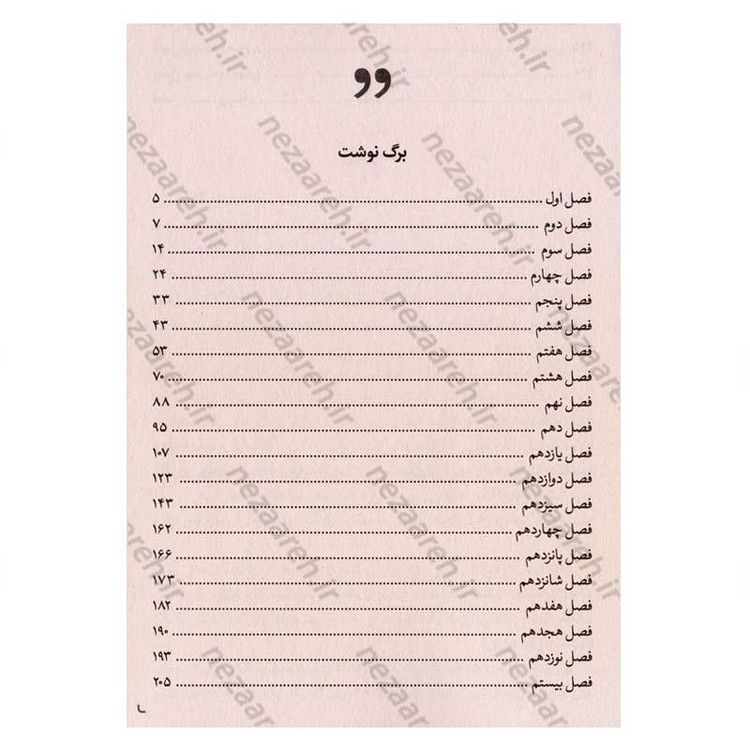 برگ نوشت
فصل اول ........ ۵
فصل دوم ........ ۷
فصل سوم ........ ۱۴
فصل چهارم ........ ۲۴
فصل پنجم ........ ۳۳
فصل ششم ........ ۴۳
فصل هفتم ........ ۵۳
فصل هشتم ........ ۷۰
فصل نهم ........ ۸۸
فصل دهم ........ ۹۵
فصل یازدهم ........ ۱۰۷
فصل دوازدهم ........ ۱۲۳
فصل سیزدهم ........ ۱۴۳
فصل چهاردهم ........ ۱۶۲
فصل پانزدهم ........ ۱۶۶
فصل شانزدهم ........ ۱۷۳
فصل هفدهم ........ ۱۸۲
فصل هجدهم ........ ۱۹۰
فصل نوزدهم ........ ۱۹۳
فصل بیستم ........ ۲۰۵
nezaareh.ir